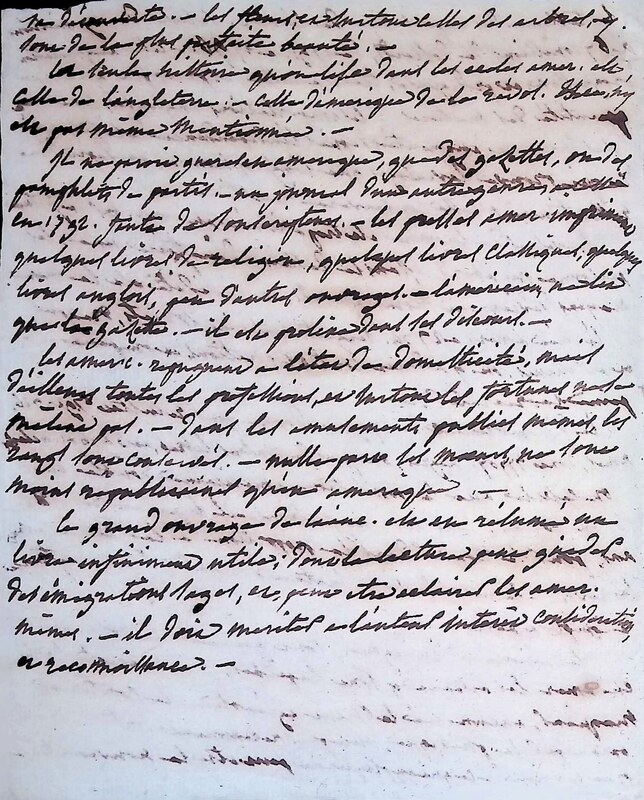 sa découverte. - les fleurs, et surtout celles des arbres, y
sont de la plus parfaite beauté. -
la seule histoire qu'on lise dans les ecoles amer. est
celle de l'angleterre. - celle d'amerique de la revol. n'y
est pas même mentionnée. -
Il ne paroit gueres en amerique, que des gazettes, ou des
pamphlets de partis. - un journal d'un autre genre a
en 1792. faute de souscripteurs. - les presses amer. impriment
quelques livres de religion, quelques livres classiques, quelques
livres anglois, peu d'autres ouvrages. - l'americain ne lit
que la gazette. - il est prolixe dans ses discours. -
les americ. repugnent a l'état de domesticité, mais
d'ailleurs toutes les professions, et surtout les fortunes ne se
mêlent pas. - dans les amusements publics mêmes, les
rangs sont conservés. - nulle part les moeurs ne sont
moins republicaines qu'en amerique. -
le grand ouvrage de liant. est en résumé un
livre infiniment utile, dont la lecture peut guider
des émigrations sages, et peut etre eclairer les amer.
mêmes. - il doit meriter a l'auteur interêt consideration,
et reconnoissance. -